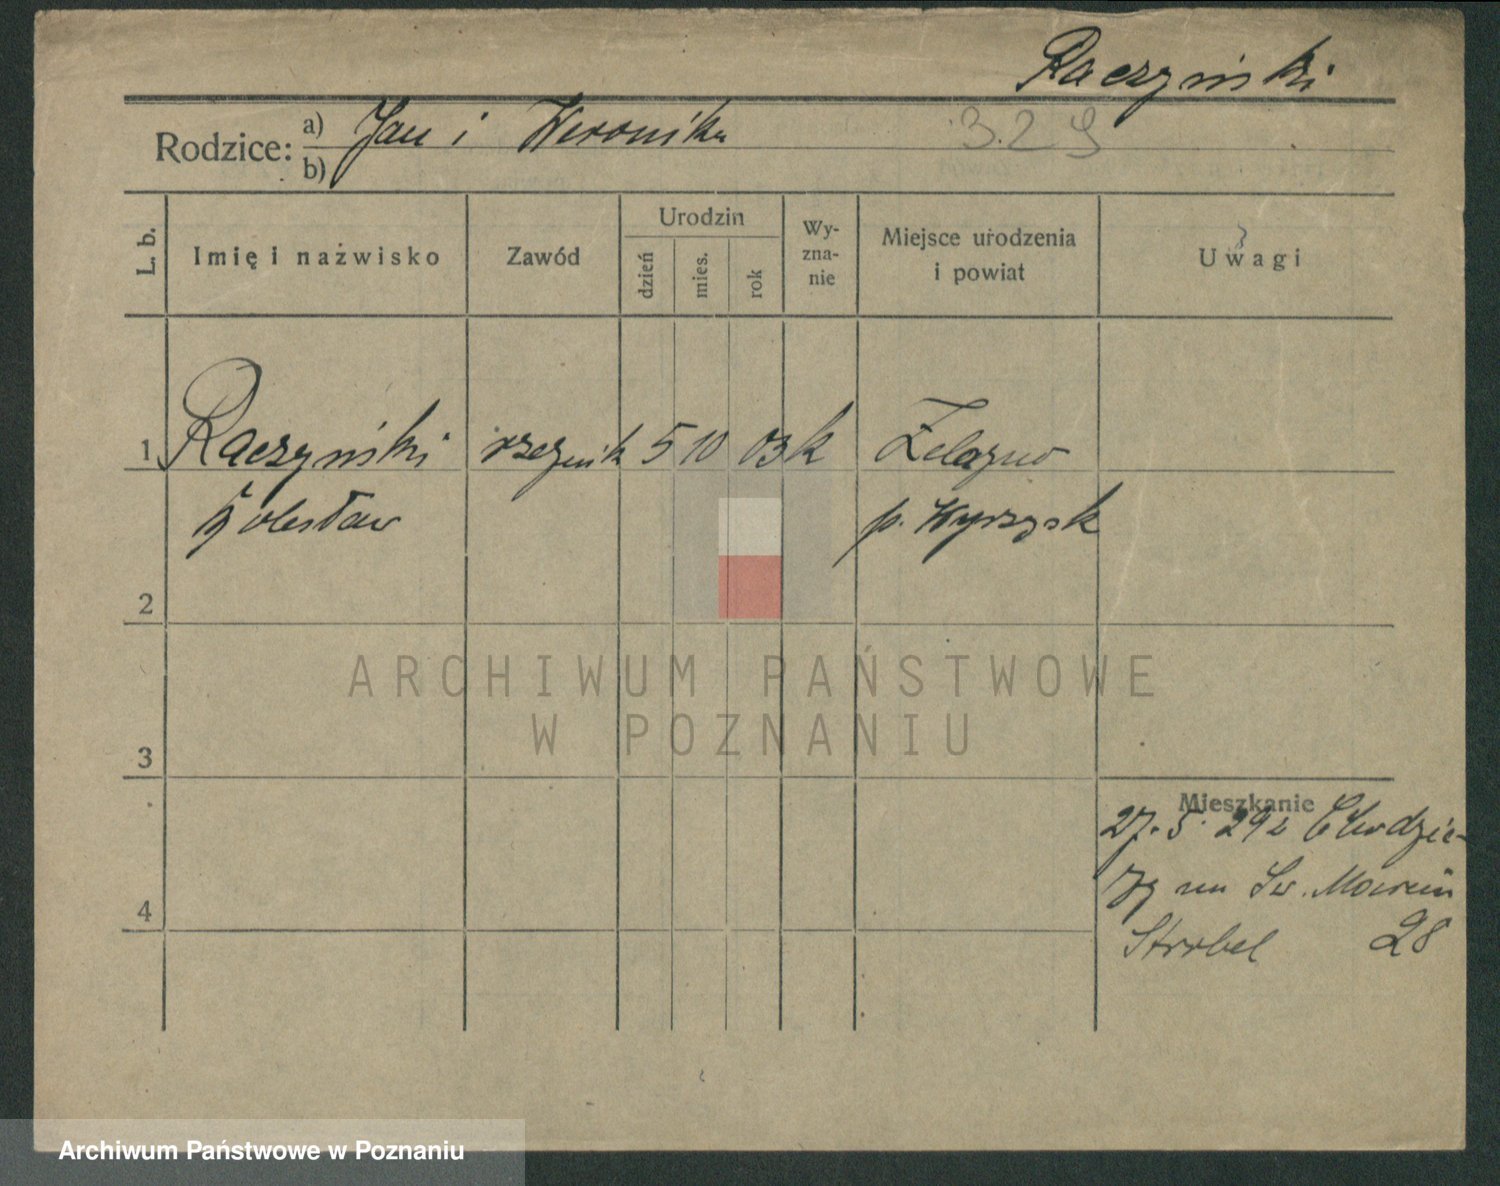 Raczyński
Rodzice: a) Jan i Weronika
b)
3.29
L. b.
Imię i nazwisko
Zawód
Urodzin
dzień
mies.
rok
Wy-
zna-
nie
Miejsce urodzenia
i powiat
Uwagi
1 Raczyński rzeźnik 5 10 03 k Żelazno
Bolesław p. Wyrzysk
2
3
4
ARCHIWUM PAŃSTWOWE
W POZNANIU
Mieszkanie
27.5.29 z Chodzie-
ży na Św. Marcin
Strobel 28
Archiwum Państwowe w Poznaniu